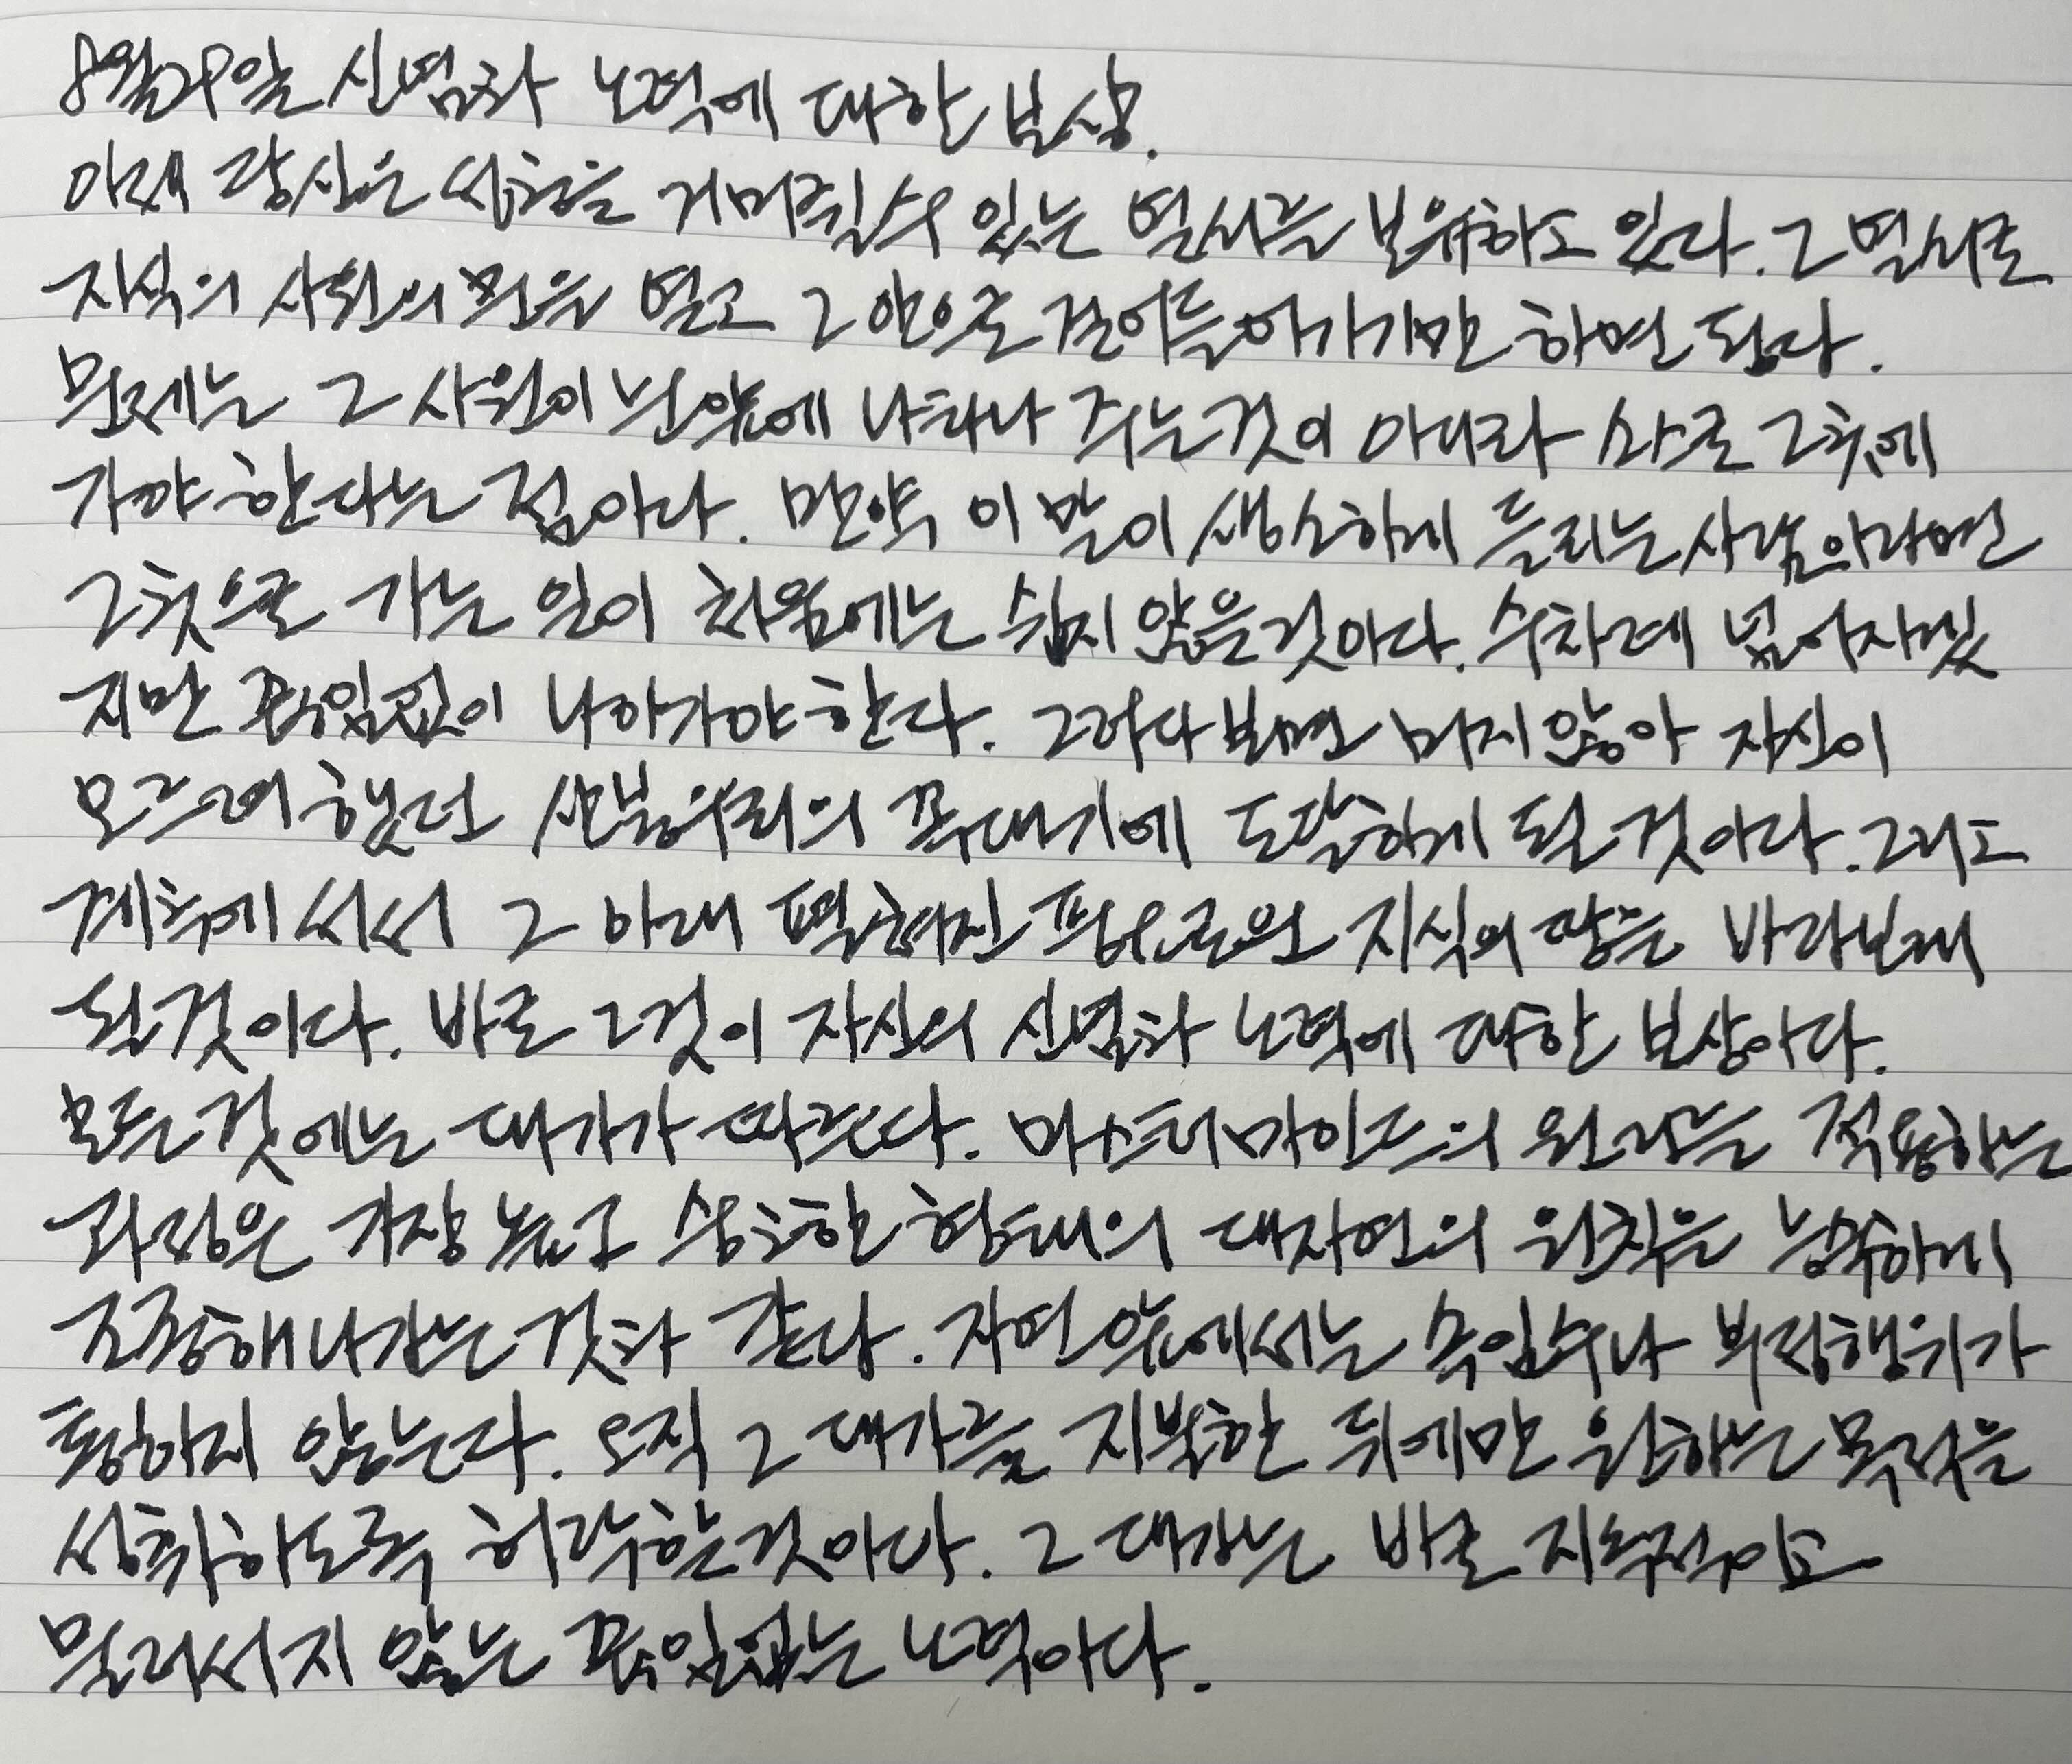 8월29일 신념과 노력에 대한 보상.
이제 당신은 성공을 거머쥘수 있는 열쇠를 보유하고 있다. 그 열쇠로
지식의 사원의 문을 열고 그 안으로 걸어들어가기만 하면 된다.
문제는 그 사원이 눈앞에 나타나 주는것이 아니라 스스로 그곳에
가야 한다는 점이다. 만약 이 말이 생소하게 들리는 사람이라면
그곳으로 가는 일이 처음에는 쉽지 않을것이다. 수차례 넘어지겠
지만 끊임없이 나아가야 한다. 그러다보면 머지않아 자신이
오르려 했던 산봉우리의 꼭대기에 도달하게 될 것이다. 그리고
계속에 서서 그 아래 펼쳐진 풍요로운 지식의 땅을 바라보게
될것이다. 바로 그것이 자신의 신념과 노력에 대한 보상이다.
모든것에는 대가가 따른다. 마스터마인드의 원리를 적용하는
과정은 가장 높고 숭고한 형태의 대자연의 원칙을 능숙하게
조종해나가는 것과 같다. 자연 앞에서는 속임수나 부정행위가
통하지 않는다. 오직 그 대가를 지불한 뒤에만 원하는 목적을
성취하도록 허락할것이다. 그 대가는 바로 지속적이고
물러서지 않는 끊임없는 노력이다.